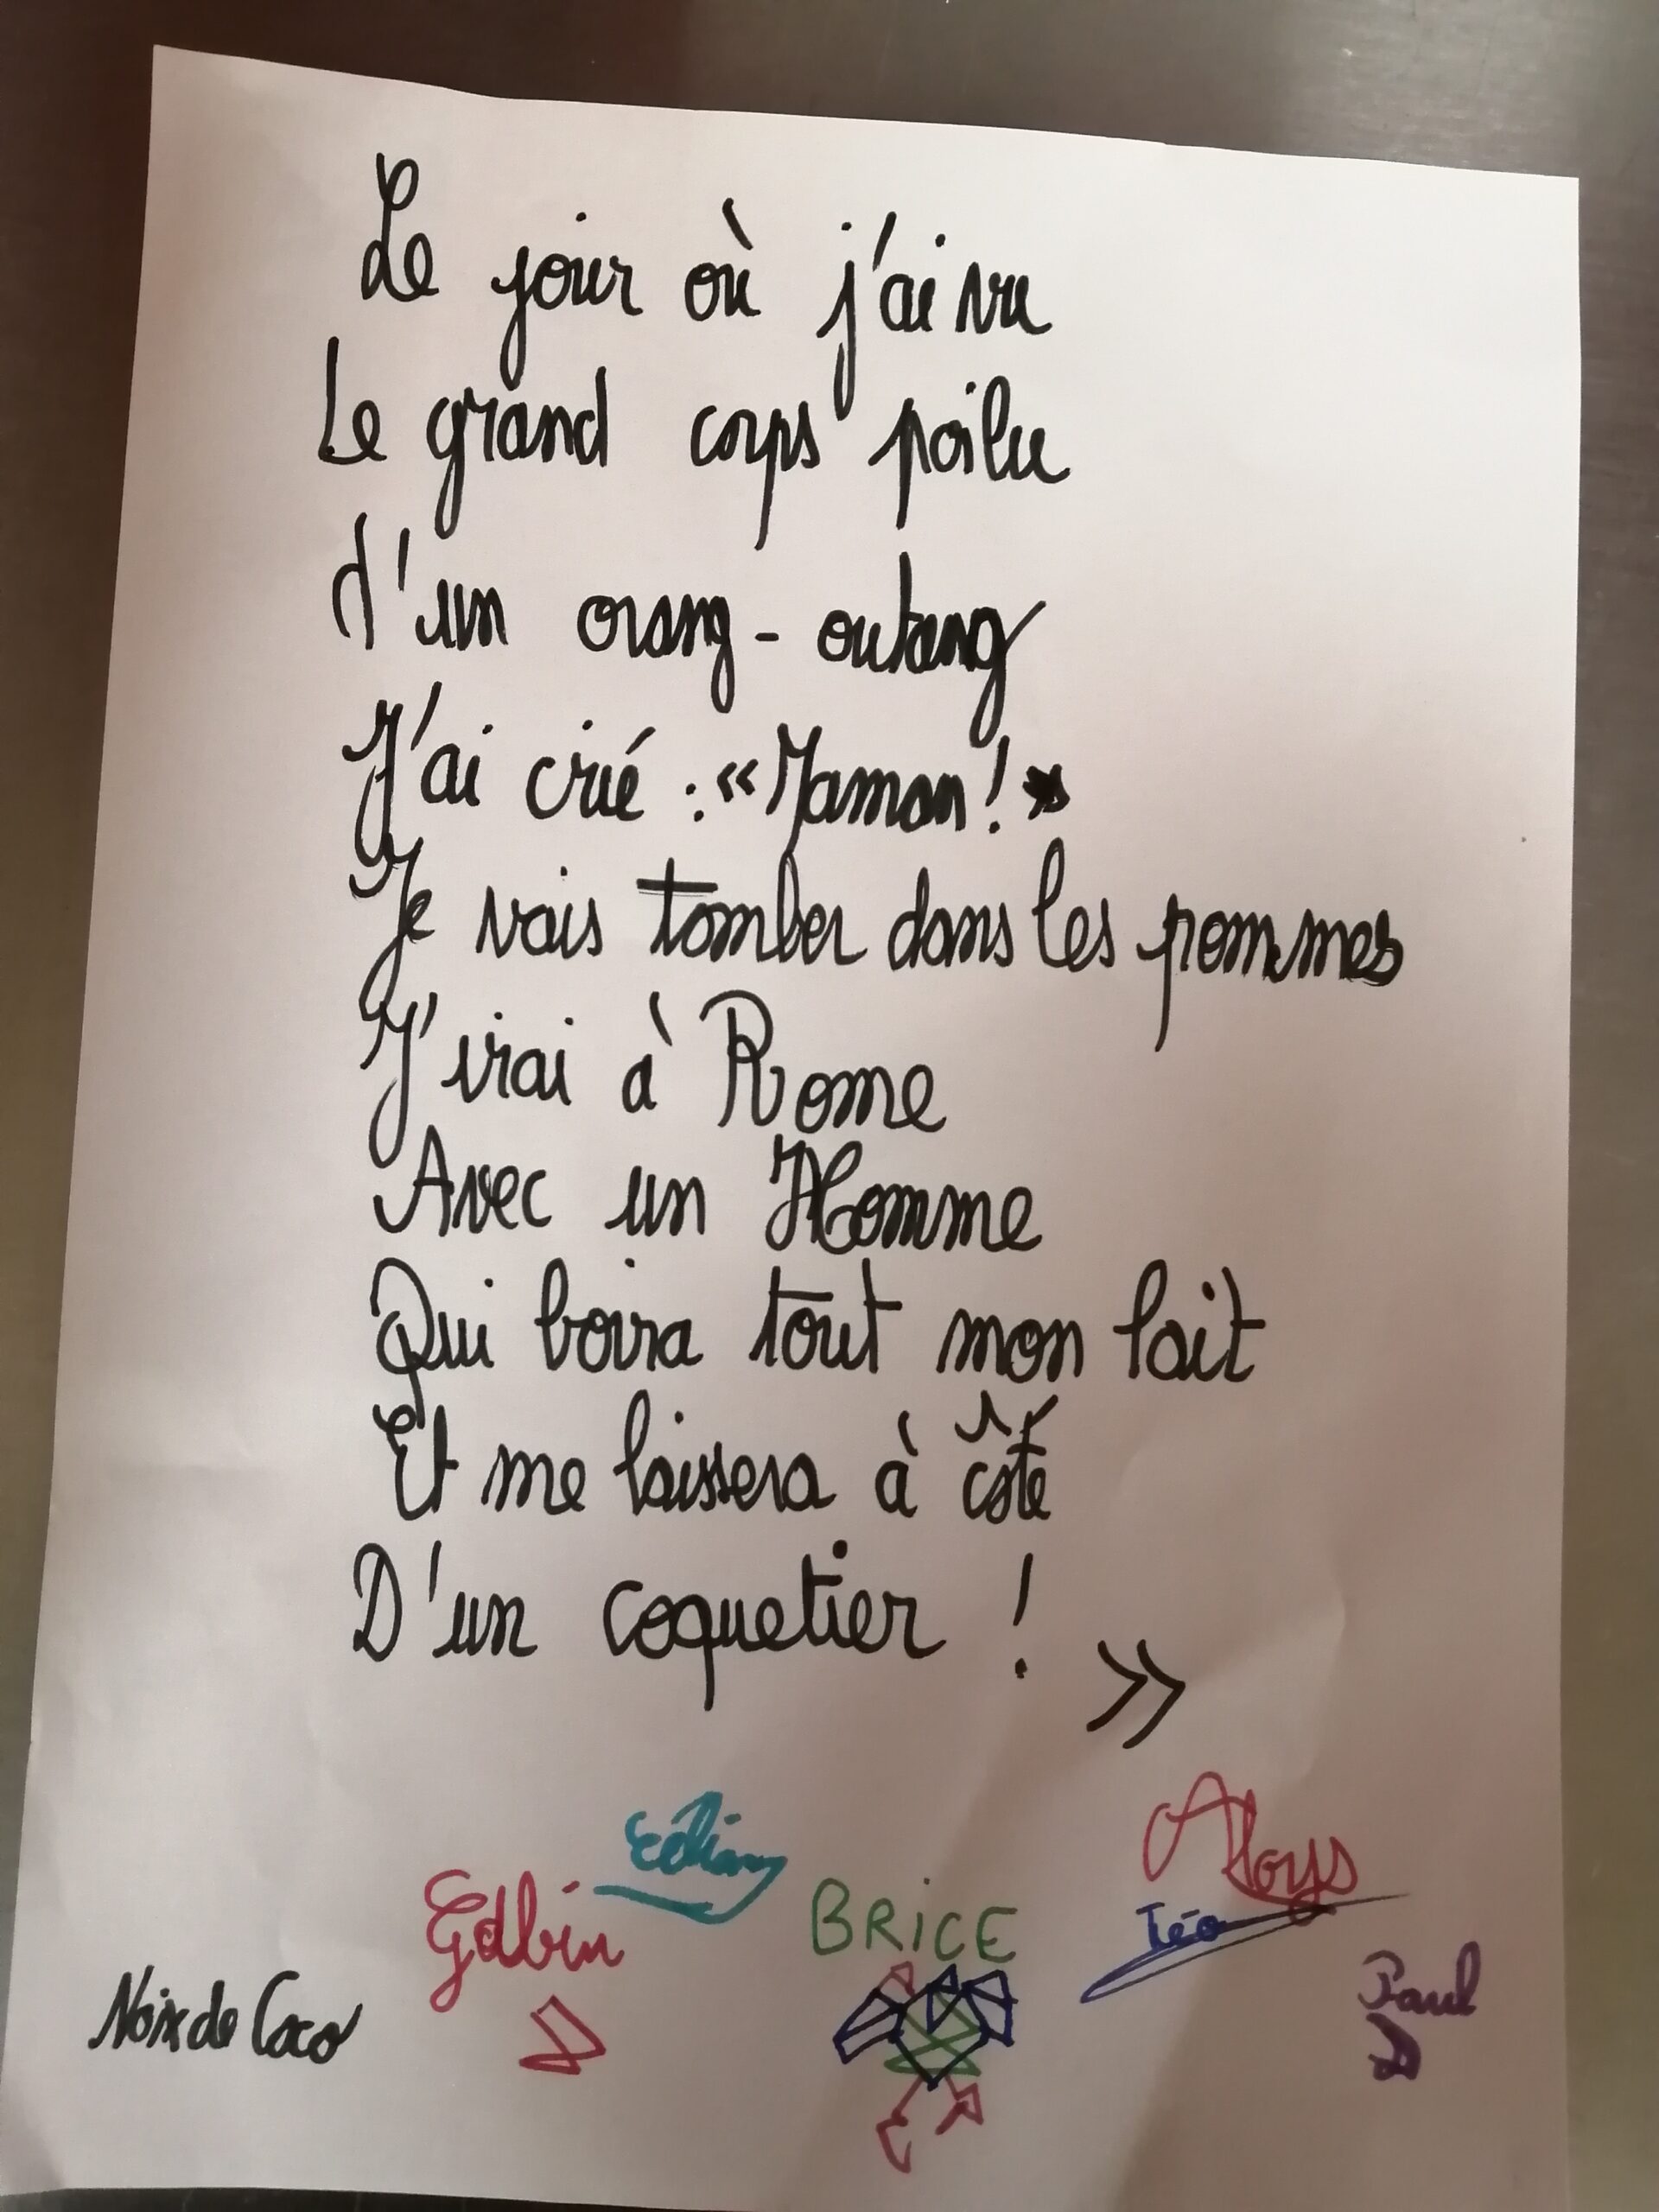 Le jour où j'ai vu
Le grand corps poilu
d'un orang-outang
J'ai crié : « Maman !
Je vais tomber dans les pommes
J'irai à Rome
Avec un Homme
Qui boira tout mon lait
Et me laissera à côté
D'un coquetier !
»
Aloys
BRICE
Téo
Paul
Noix de Coco